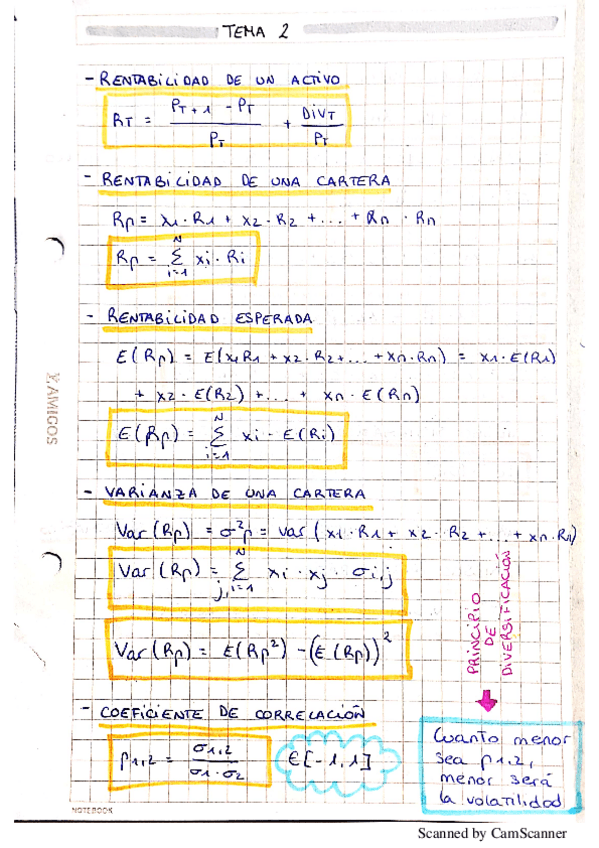 TEMA 2
- RENTABILIDAD DE UN ACTIVO
RT = (PT+1 - PT) / PT + DivT / PT
- RENTABILIDAD DE UNA CARTERA
Rp = x1·R1 + x2·R2 + ... + Rn · Rn
Rp = N Σ i=1 xi · Ri
- RENTABILIDAD ESPERADA
E(Rp) = E(x1R1 + x2·R2 + ... + xn·Rn) = x1·E(R1)
+ x2·E(R2) + ... + xn·E(Rn)
E(Rp) = N Σ i=1 xi · E(Ri)
- VARIANZA DE UNA CARTERA
Var(Rp) = σ²p = var(x1·R1 + x2·R2 + ... + xn·Rn)
Var(Rp) = N Σ j,i=1 xi · xj · σi,j
Var(Rp) = E(Rp²) - (E(Rp))²
PRINCIPIO
DE
DIVERSIFICACIÓN
- COEFICIENTE DE CORRELACIÓN
ρ1,2 = σ1,2 / σ1·σ2
∈[-1,1]
Cuanto menor
sea ρ1,2,
menor será
la volatilidad
Y.AMIGOS
NOTEBOOK
Scanned by CamScanner